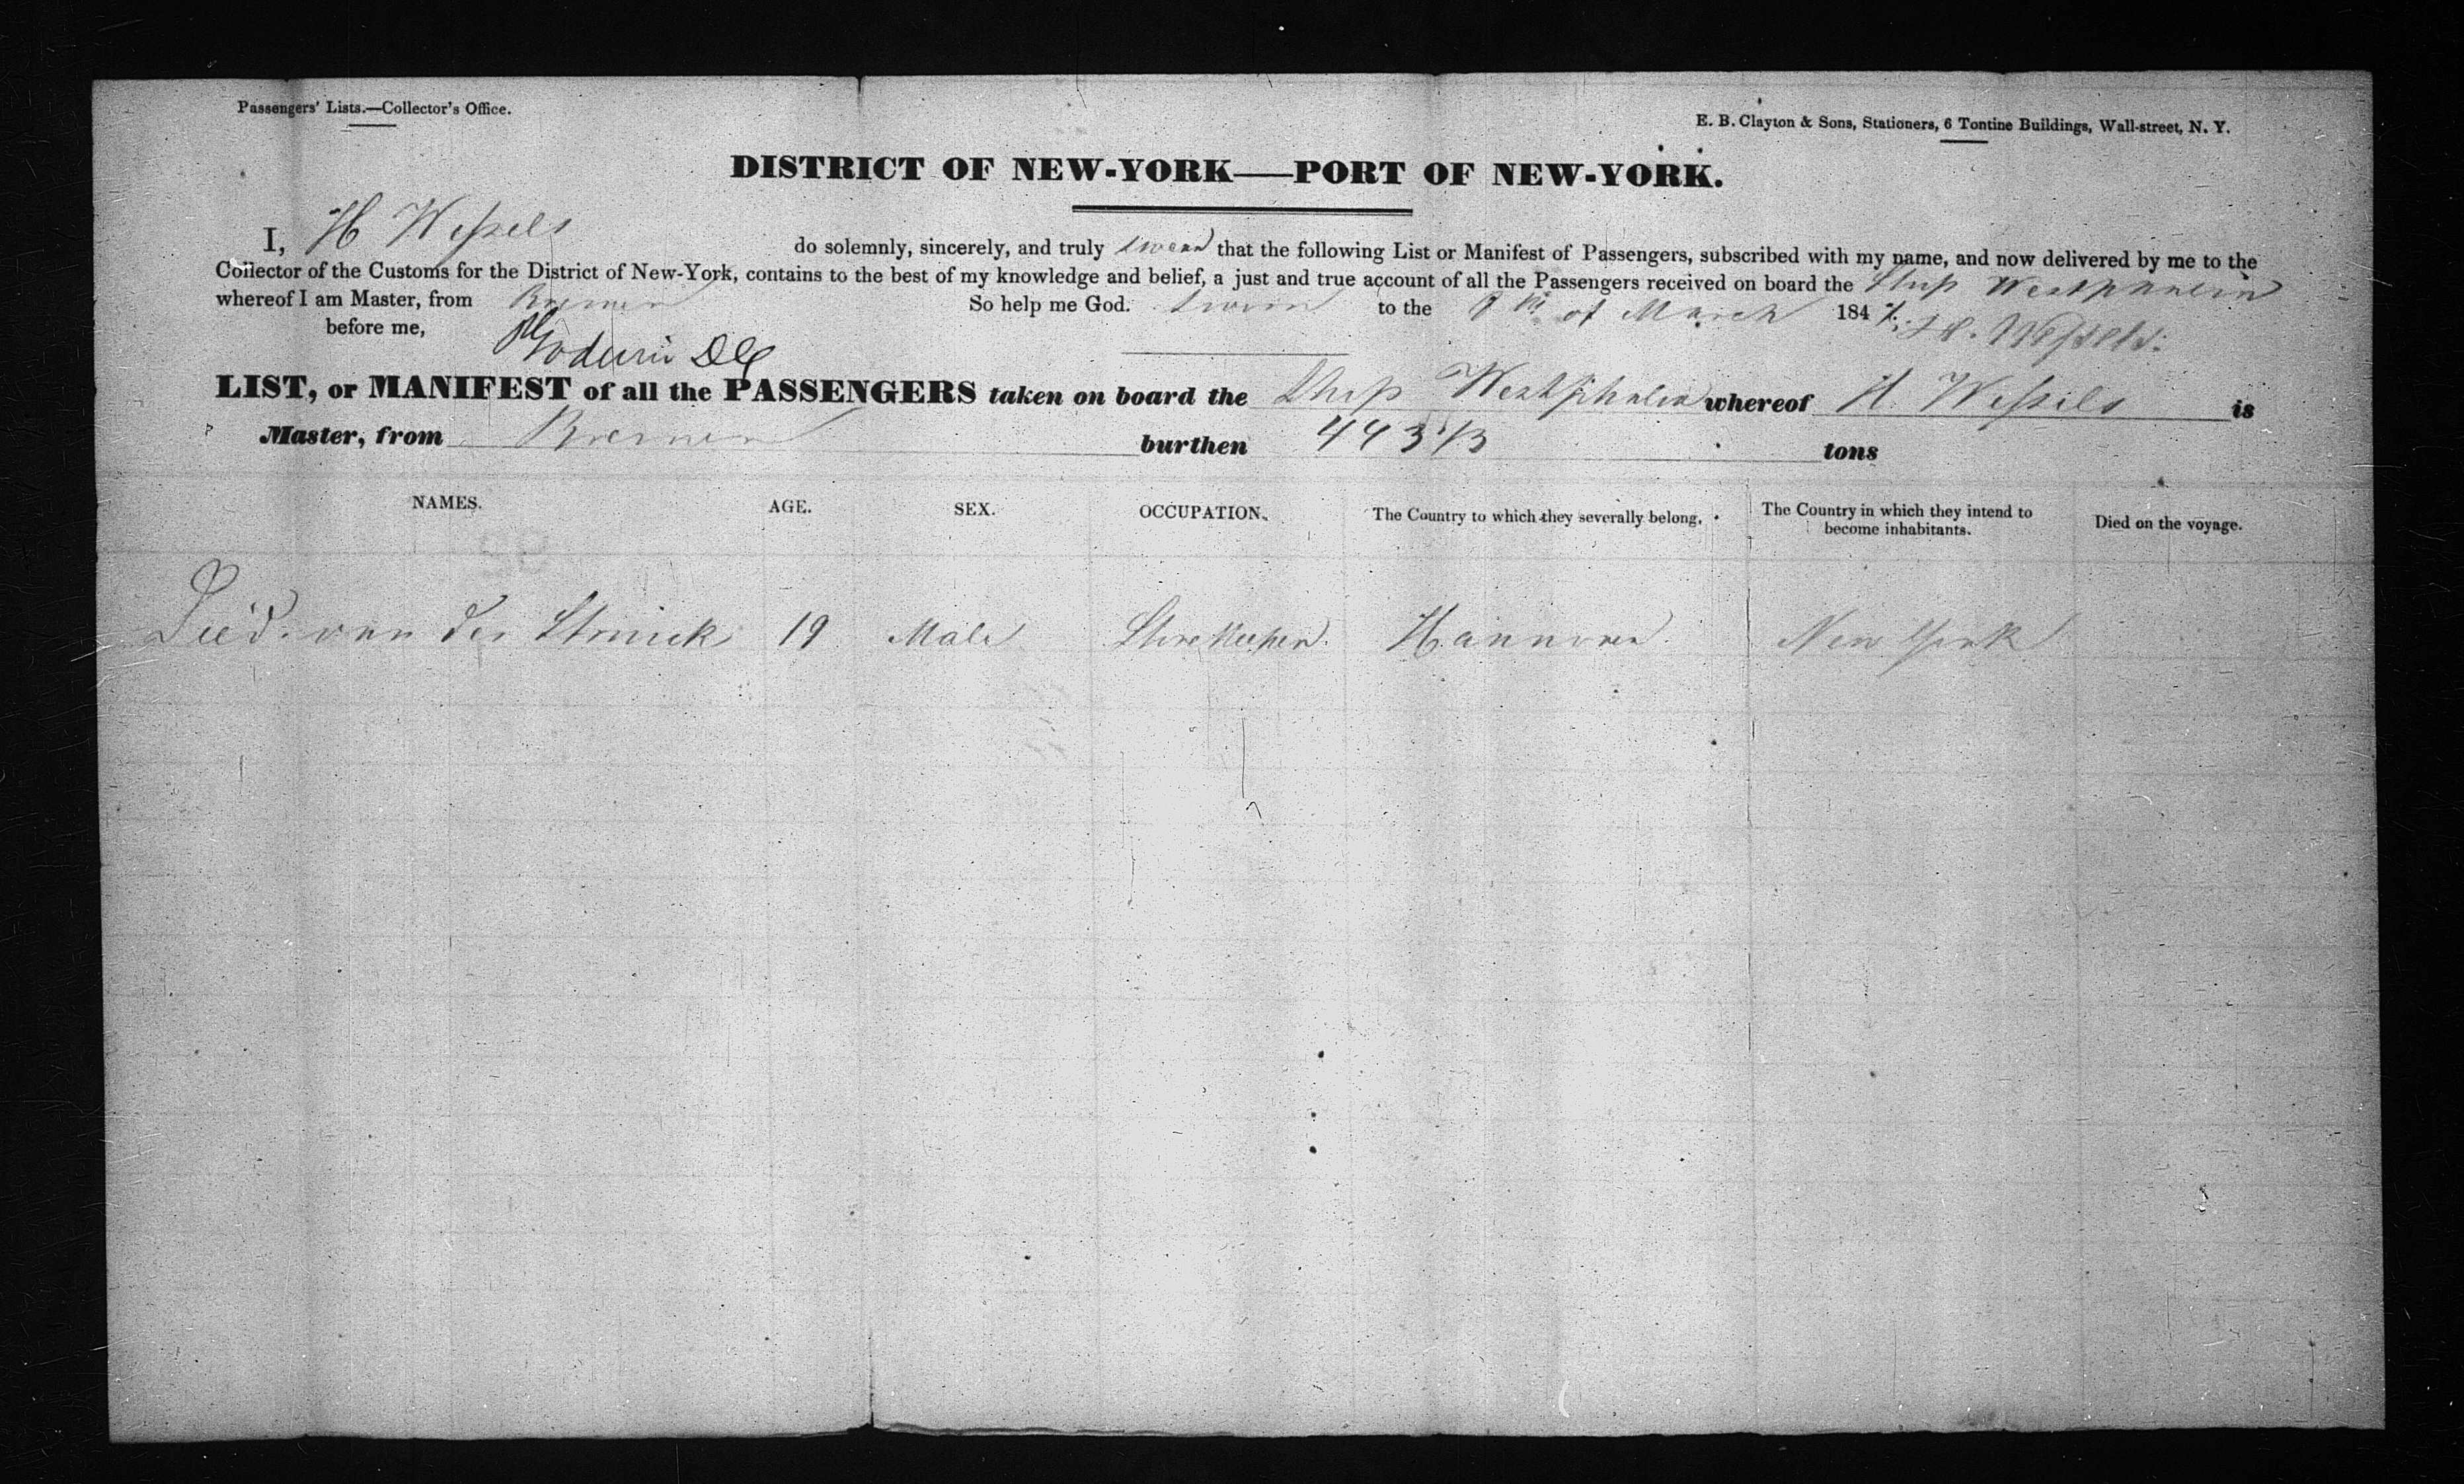 Passengers' Lists.—Collector's Office.
E. B. Clayton & Sons, Stationers, 6 Tontine Buildings, Wall-street, N. Y.
DISTRICT OF NEW-YORK—PORT OF NEW-YORK.
I, H Wessels do solemnly, sincerely, and truly swear that the following List or Manifest of Passengers, subscribed with my name, and now delivered by me to the
Collector of the Customs for the District of New-York, contains to the best of my knowledge and belief, a just and true account of all the Passengers received on board the Ship Westphalia
whereof I am Master, from Bremen So help me God. Sworn to the of March 184 H. Wessels.
before me,
LIST, or MANIFEST of all the PASSENGERS taken on board the Ship Westphalia whereof H. Wessels is
Master, from Bremen burthen 443 1/3 tons
NAMES. AGE. SEX. OCCUPATION. The Country to which they severally belong. The Country in which they intend to become inhabitants. Died on the voyage.
Died. van der 19 Male Storekeeper. Hannover. New York